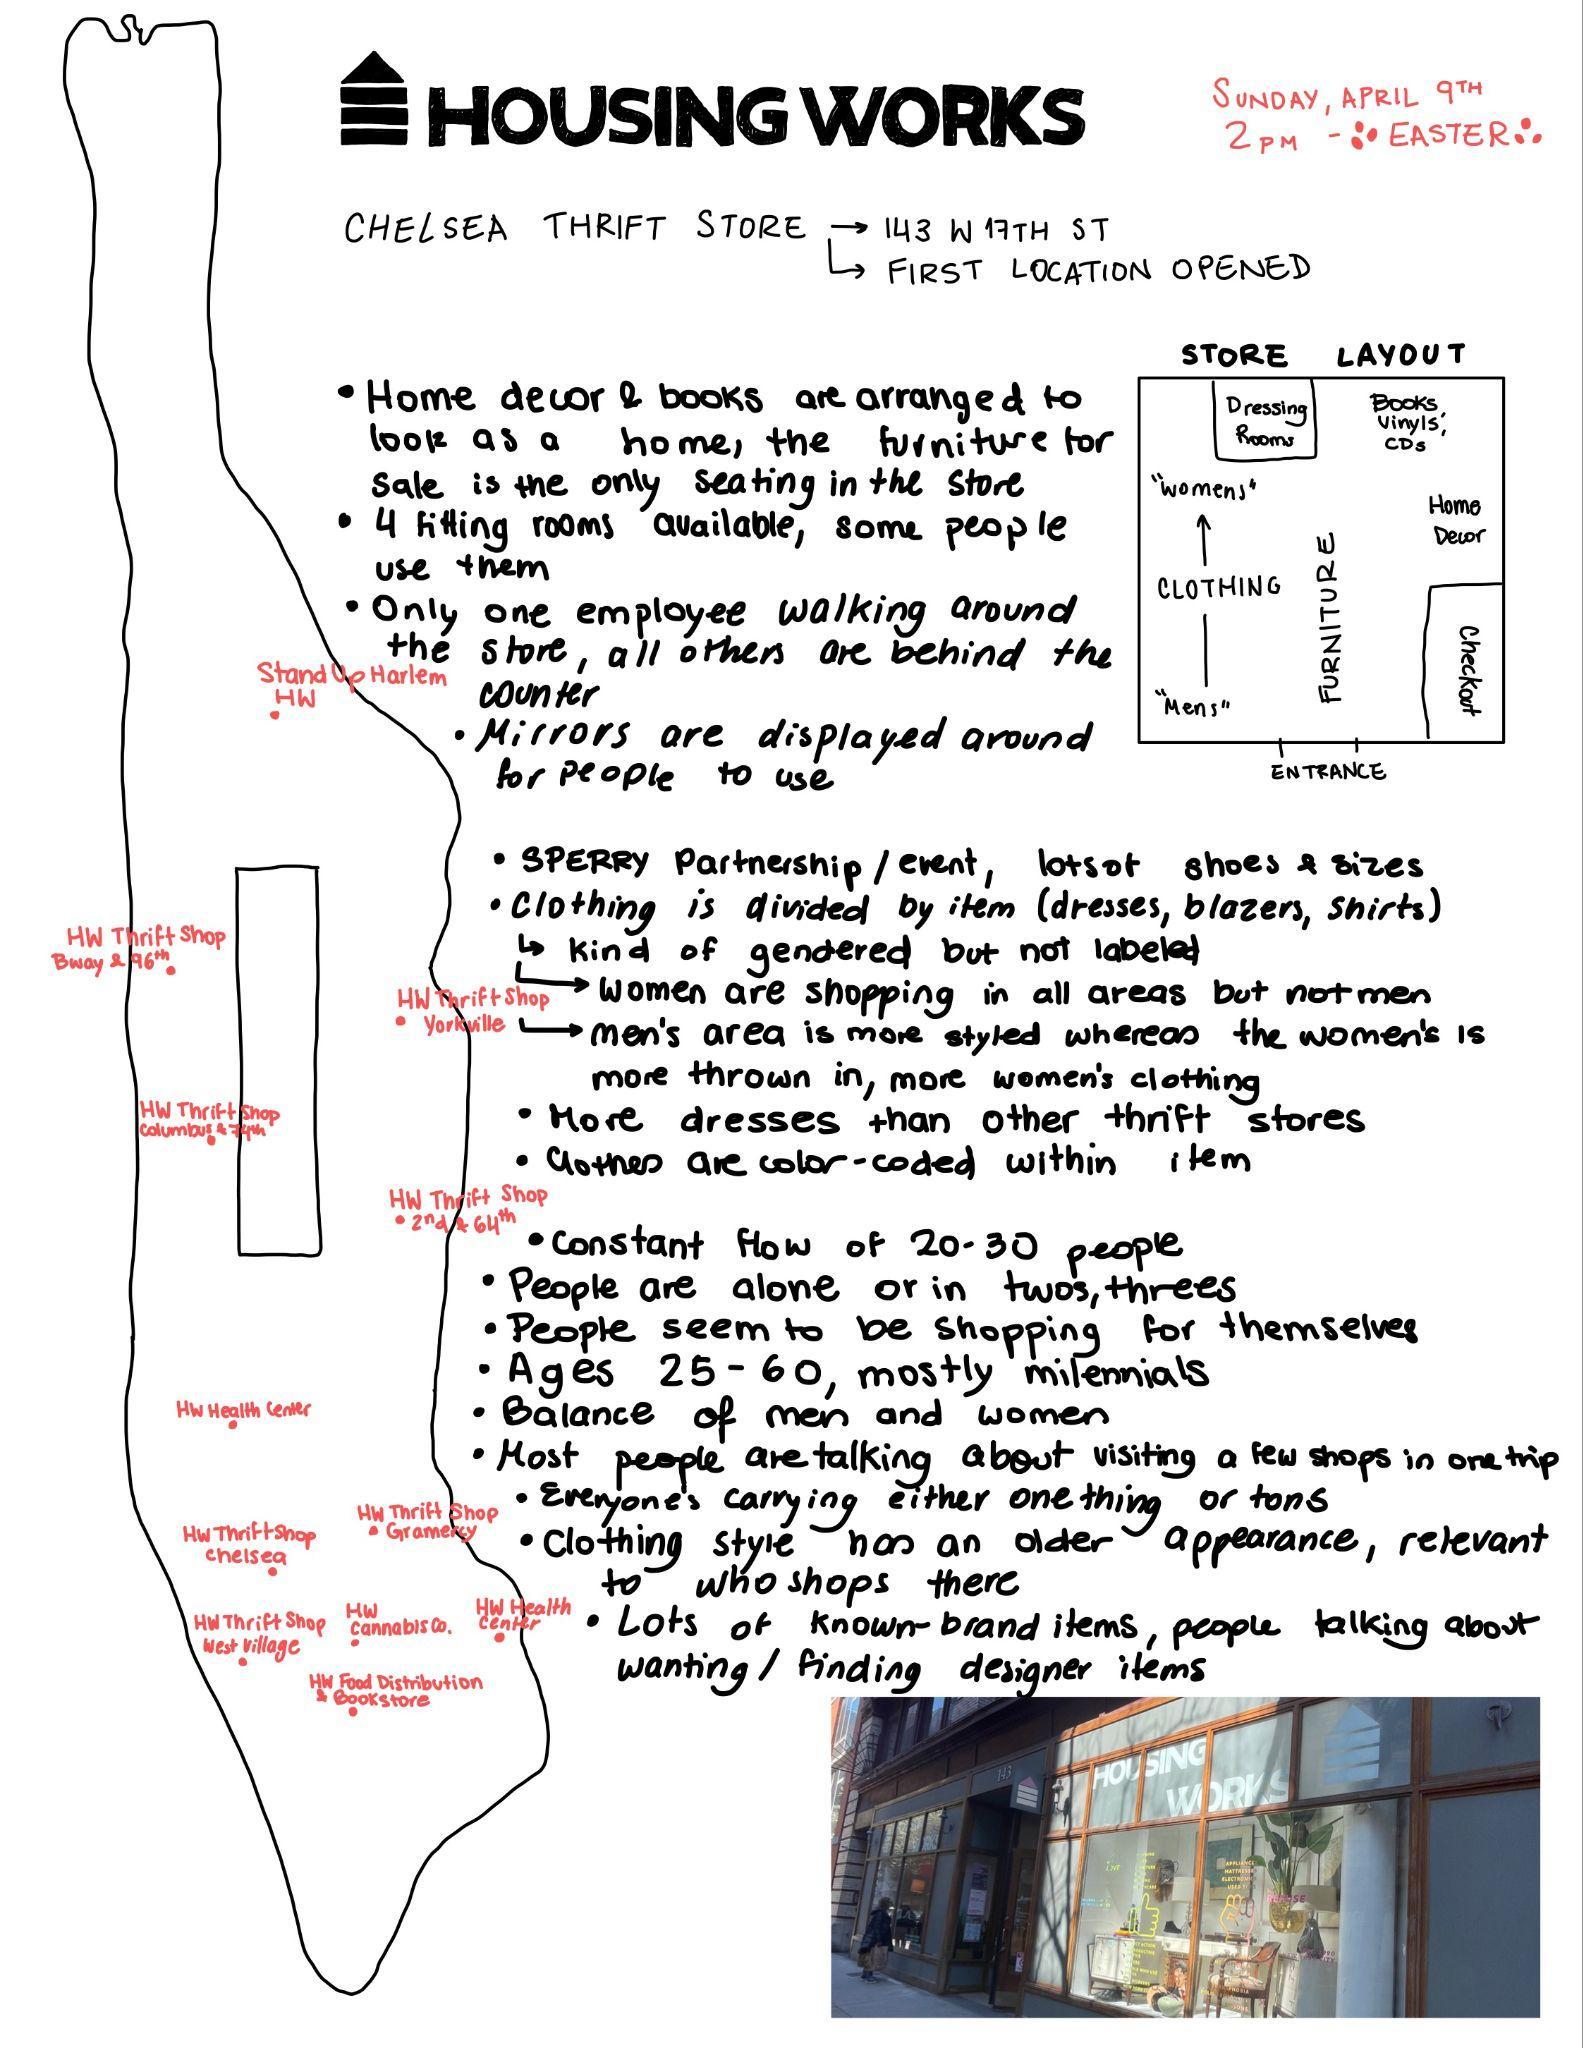 HOUSING WORKS
SUNDAY, APRIL 9TH
2 PM - EASTER
CHELSEA THRIFT STORE → 143 W 17TH ST
↳ FIRST LOCATION OPENED
• Home decor & books are arranged to
look as a home, the furniture for
sale is the only seating in the store
• 4 fitting rooms available, some people
use them
• Only one employee walking around
the store, all others are behind the
counter
• Mirrors are displayed around
for people to use
STORE LAYOUT
Dressing
Rooms
Books,
Vinyls,
CDs
"Womens"
Home
Decor
CLOTHING
FURNITURE
Checkout
"Mens"
ENTRANCE
• SPERRY Partnership / event, lots of shoes & sizes
• Clothing is divided by item (dresses, blazers, shirts)
↳ Kind of gendered but not labeled
→ women are shopping in all areas but not men
→ men's area is more styled whereas the women's is
more thrown in, more women's clothing
• More dresses than other thrift stores
• Clothes are color-coded within item
• Constant flow of 20-30 people
• People are alone or in twos, threes
• People seem to be shopping for themselves
• Ages 25-60, mostly milennials
• Balance of men and women
• Most people are talking about visiting a few shops in one trip
• Everyone's carrying either one thing or tons
• Clothing style has an older appearance, relevant
to who shops there
• Lots of known-brand items, people talking about
wanting / finding designer items
Stand Up Harlem
HW
HW Thrift Shop
Bway & 96th
HW Thrift Shop
Yorkville
HW Thrift Shop
Columbus & 74th
HW Thrift Shop
2nd & 64th
HW Health Center
HW Thrift Shop
Gramercy
HW Thrift Shop
Chelsea
HW Thrift Shop
West Village
HW
Cannabis Co.
HW Health
Center
HW Food Distribution
& Bookstore
143
HOUSING
WORKS